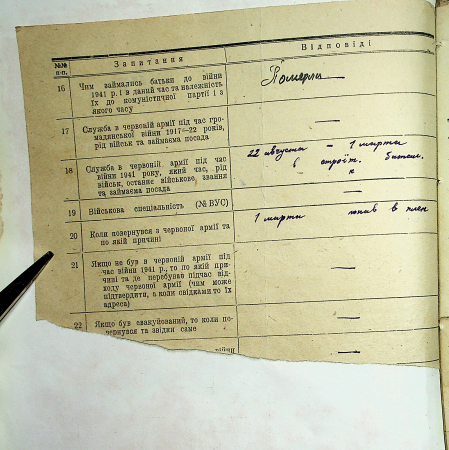 №№ п-п.
Запитання
Відповіді
16
Чим займались батьки до війни
1941 р. і в даний час та належність
їх до комуністичної партії і з
якого часу
Померли —
17
Служба в червоній армії під час гро-
мадянської війни 1917—22 років,
рід військ та займаєма посада
—
18
Служба в червоній армії під час
війни 1941 року, який час, рід
військ, останнє військове звання
та займаєма посада
22 августа — 1 марта
в строит.
19
Військова спеціальність (№ ВУС)
—
20
Коли повернувся з червоної армії та
по якій причині
1 марта
в плен
21
Якщо не був в червоній армії під
час війни 1941 р., то по якій при-
чині та де перебував підчас від-
ходу червоної армії (чим може
підтвердити, а коли свідками то їх
адреса)
—
22
Якщо був евакуйований, то коли по-
вернувся та звідки саме
—
—